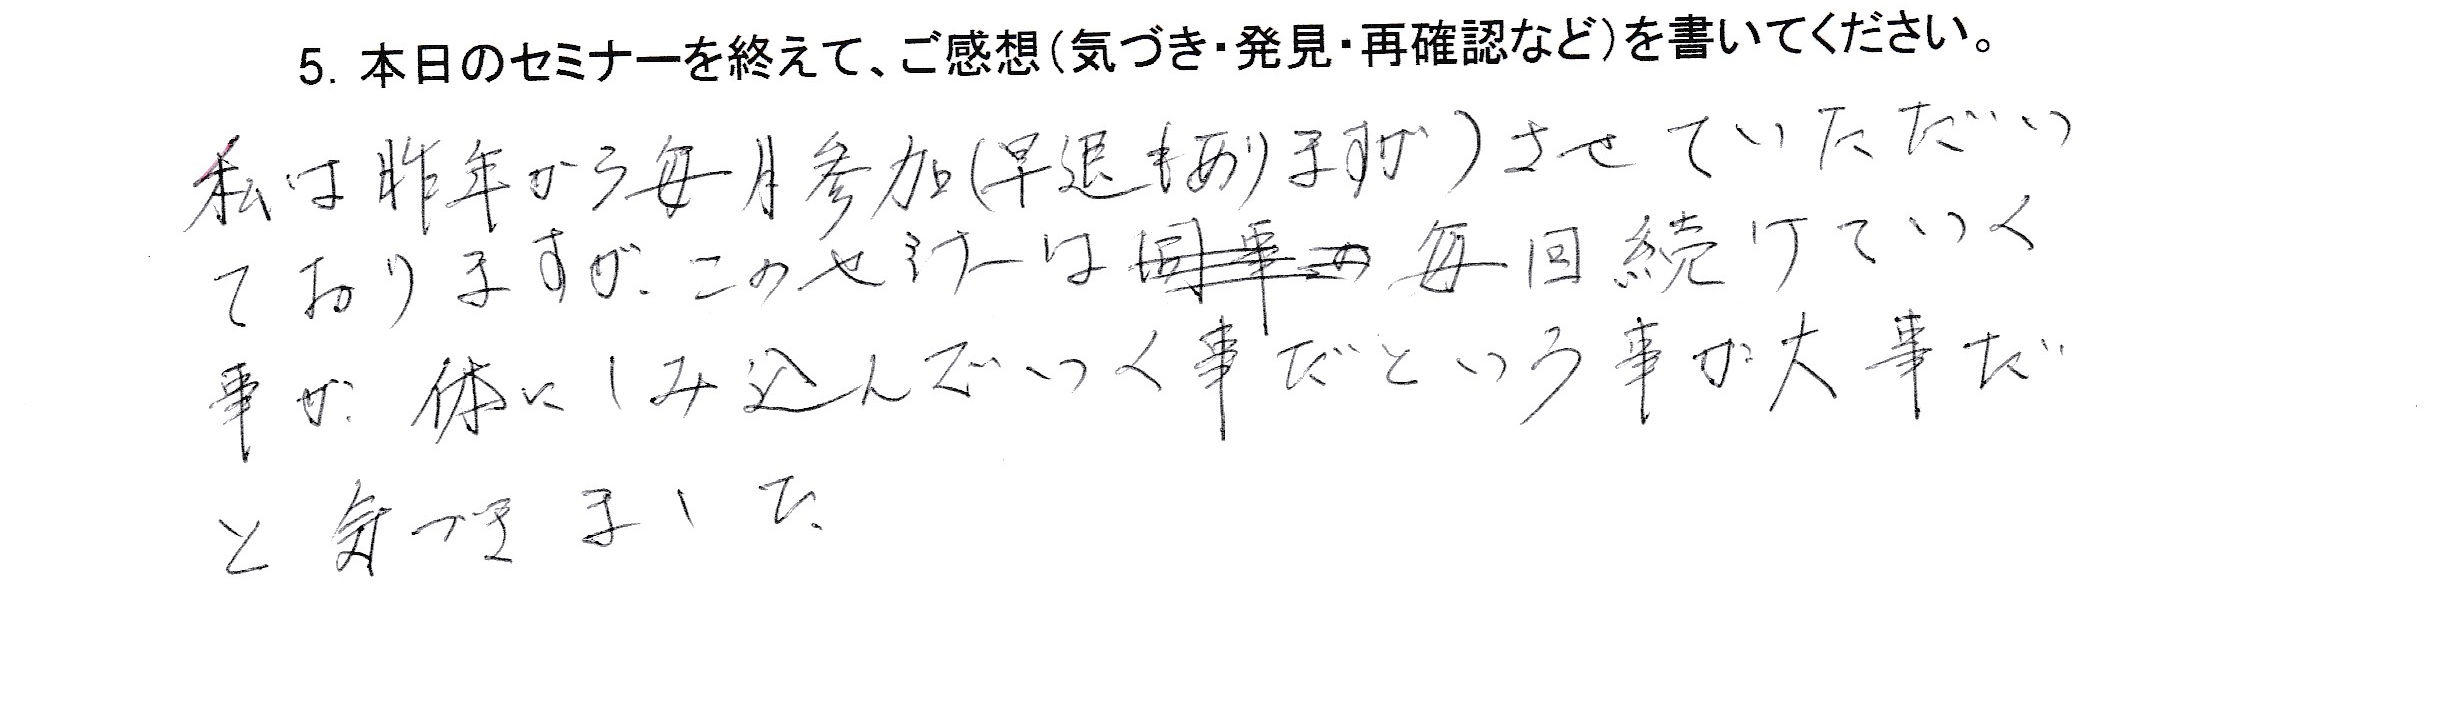 5. 本日のセミナーを終えて、ご感想（気づき・発見・再確認など）を書いてください。
私は昨年から毎月参加(早退もありますが)させていただいっ
ておりますが、このセミナーは毎回続けていく
事が体にしみ込んでいく事だという事が大事だ
と気づきました。